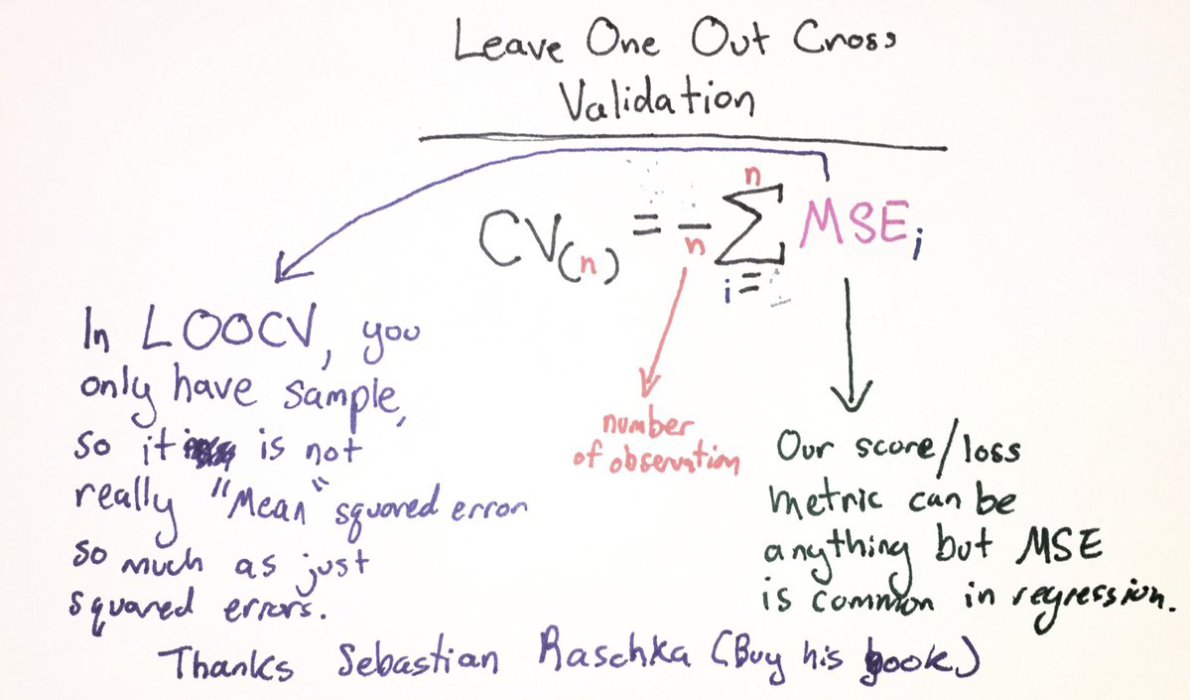 Leave One Out Cross
Validation
CV(n) = — n Σ n i= MSEi
In LOOCV, you
only have sample,
so it is not
really "Mean" squared error
so much as just
squared errors.
number
of observation
Our score/loss
metric can be
anything but MSE
is common in regression.
Thanks Sebastian Raschka (Buy his book)